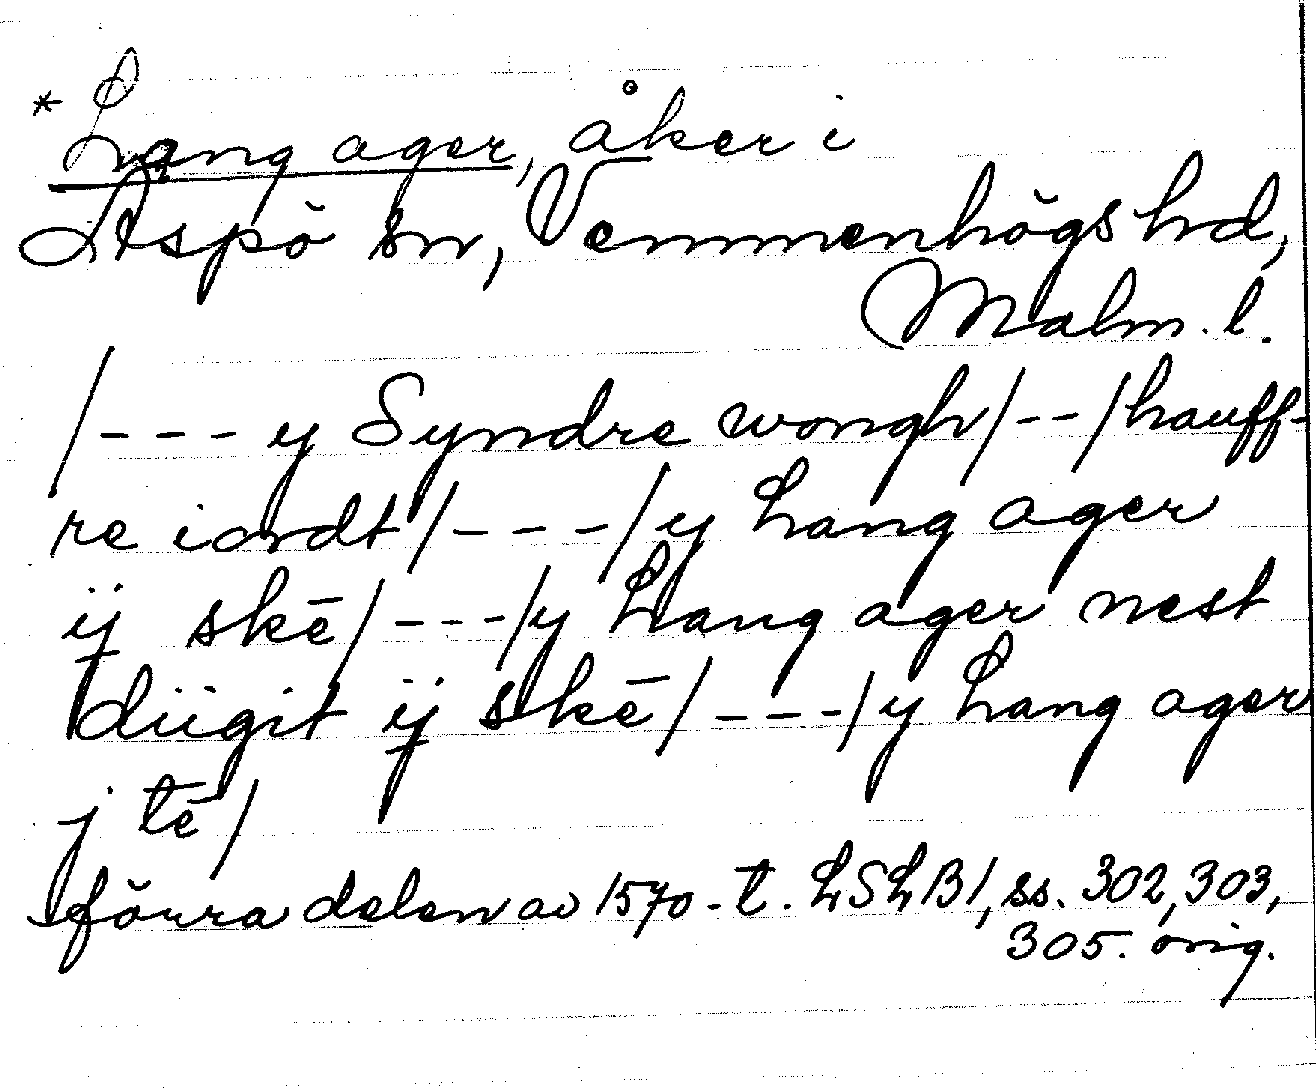 * Lang ager, åker i
Äspö sn, Vemmenhögs hd,
Malm. l.
/--- y Syndre wongh/--/hauff-
re iordt/---/y Lang ager
ij skē/---/y Lang ager nest
diigit ij skē/---/y Lang ager
j tē/
förra delen av 1570-t. LSLB1, ss. 302, 303,
305. orig.